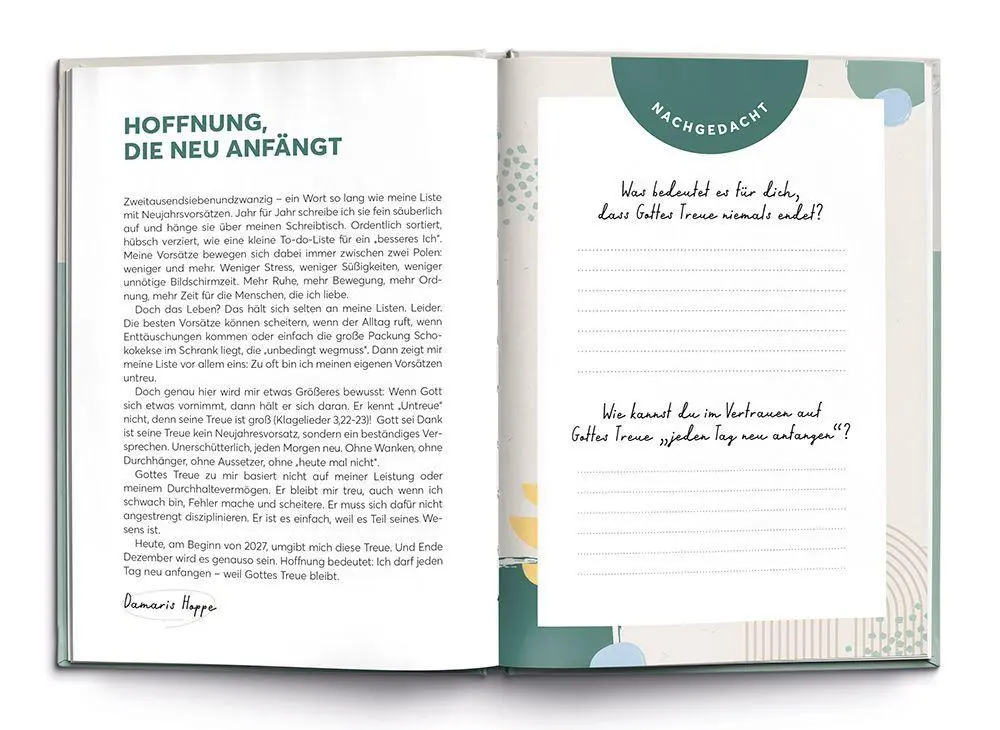 HOFFNUNG,
DIE NEU ANFÄNGT
Zweitausendsiebenundzwanzig – ein Wort so lang wie meine Liste
mit Neujahrsvorsätzen. Jahr für Jahr schreibe ich sie fein säuberlich
auf und hänge sie über meinen Schreibtisch. Ordentlich sortiert,
hübsch verziert, wie eine kleine To-do-Liste für ein „besseres Ich“.
Meine Vorsätze bewegen sich dabei immer zwischen zwei Polen:
weniger und mehr. Weniger Stress, weniger Süßigkeiten, weniger
unnötige Bildschirmzeit. Mehr Ruhe, mehr Bewegung, mehr Ord-
nung, mehr Zeit für die Menschen, die ich liebe.
Doch das Leben? Das hält sich selten an meine Listen. Leider.
Die besten Vorsätze können scheitern, wenn der Alltag ruft, wenn
Enttäuschungen kommen oder einfach die große Packung Scho-
kokekse im Schrank liegt, die „unbedingt wegmuss“. Dann zeigt mir
meine Liste vor allem eins: Zu oft bin ich meinen eigenen Vorsätzen
untreu.
Doch genau hier wird mir etwas Größeres bewusst: Wenn Gott
sich etwas vornimmt, dann hält er sich daran. Er kennt „Untreue“
nicht, denn seine Treue ist groß (Klagelieder 3,22-23)! Gott sei Dank
ist seine Treue kein Neujahresvorsatz, sondern ein beständiges Ver-
sprechen. Unerschütterlich, jeden Morgen neu. Ohne Wanken, ohne
Durchhänger, ohne Aussetzer, ohne „heute mal nicht“.
Gottes Treue zu mir basiert nicht auf meiner Leistung oder
meinem Durchhaltevermögen. Er bleibt mir treu, auch wenn ich
schwach bin, Fehler mache und scheitere. Er muss sich dafür nicht
angestrengt disziplinieren. Er ist es einfach, weil es Teil seines We-
sens ist.
Heute, am Beginn von 2027, umgibt mich diese Treue. Und Ende
Dezember wird es genauso sein. Hoffnung bedeutet: Ich darf jeden
Tag neu anfangen – weil Gottes Treue bleibt.
Damaris Hoppe
NACHGEDACHT
Was bedeutet es für dich,
dass Gottes Treue niemals endet?
Wie kannst du im Vertrauen auf
Gottes Treue „jeden Tag neu anfangen“?